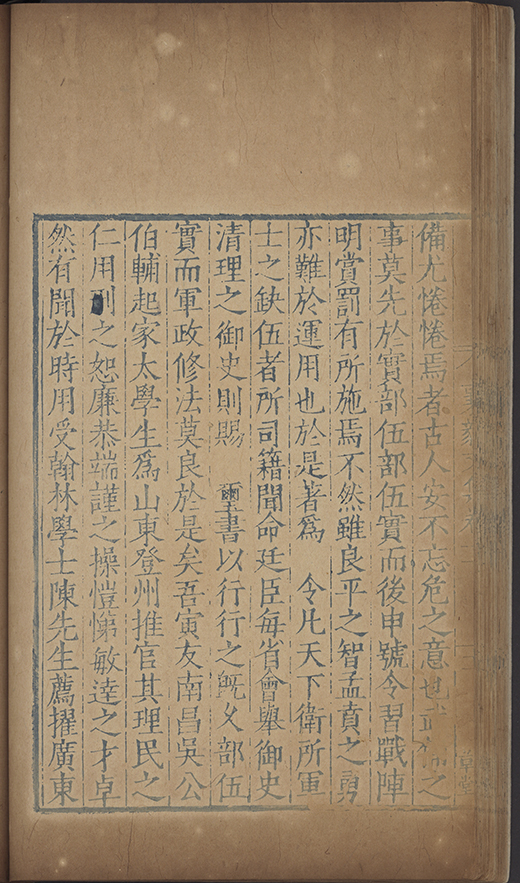 備尤惓惓焉者古人安不忘危之意也武備之
事莫先於實部伍部伍實而後申號令習戰陣
明賞罰有所施焉不然雖良平之智孟賁之勇
亦難於運用也於是著爲　令凡天下衛所軍
士之缺伍者所司籍聞命廷臣每省會舉御史
清理之御史則賜　璽書以行行之旣久部伍
實而軍政修法莫良於是矣吾寅友南昌吳公
伯輔起家太學生爲山東登州推官其理民之
仁用刑之恕廉恭端謹之操愷悌敏達之才卓
然有聞於時用受翰林學士陳先生薦擢廣東
草堂